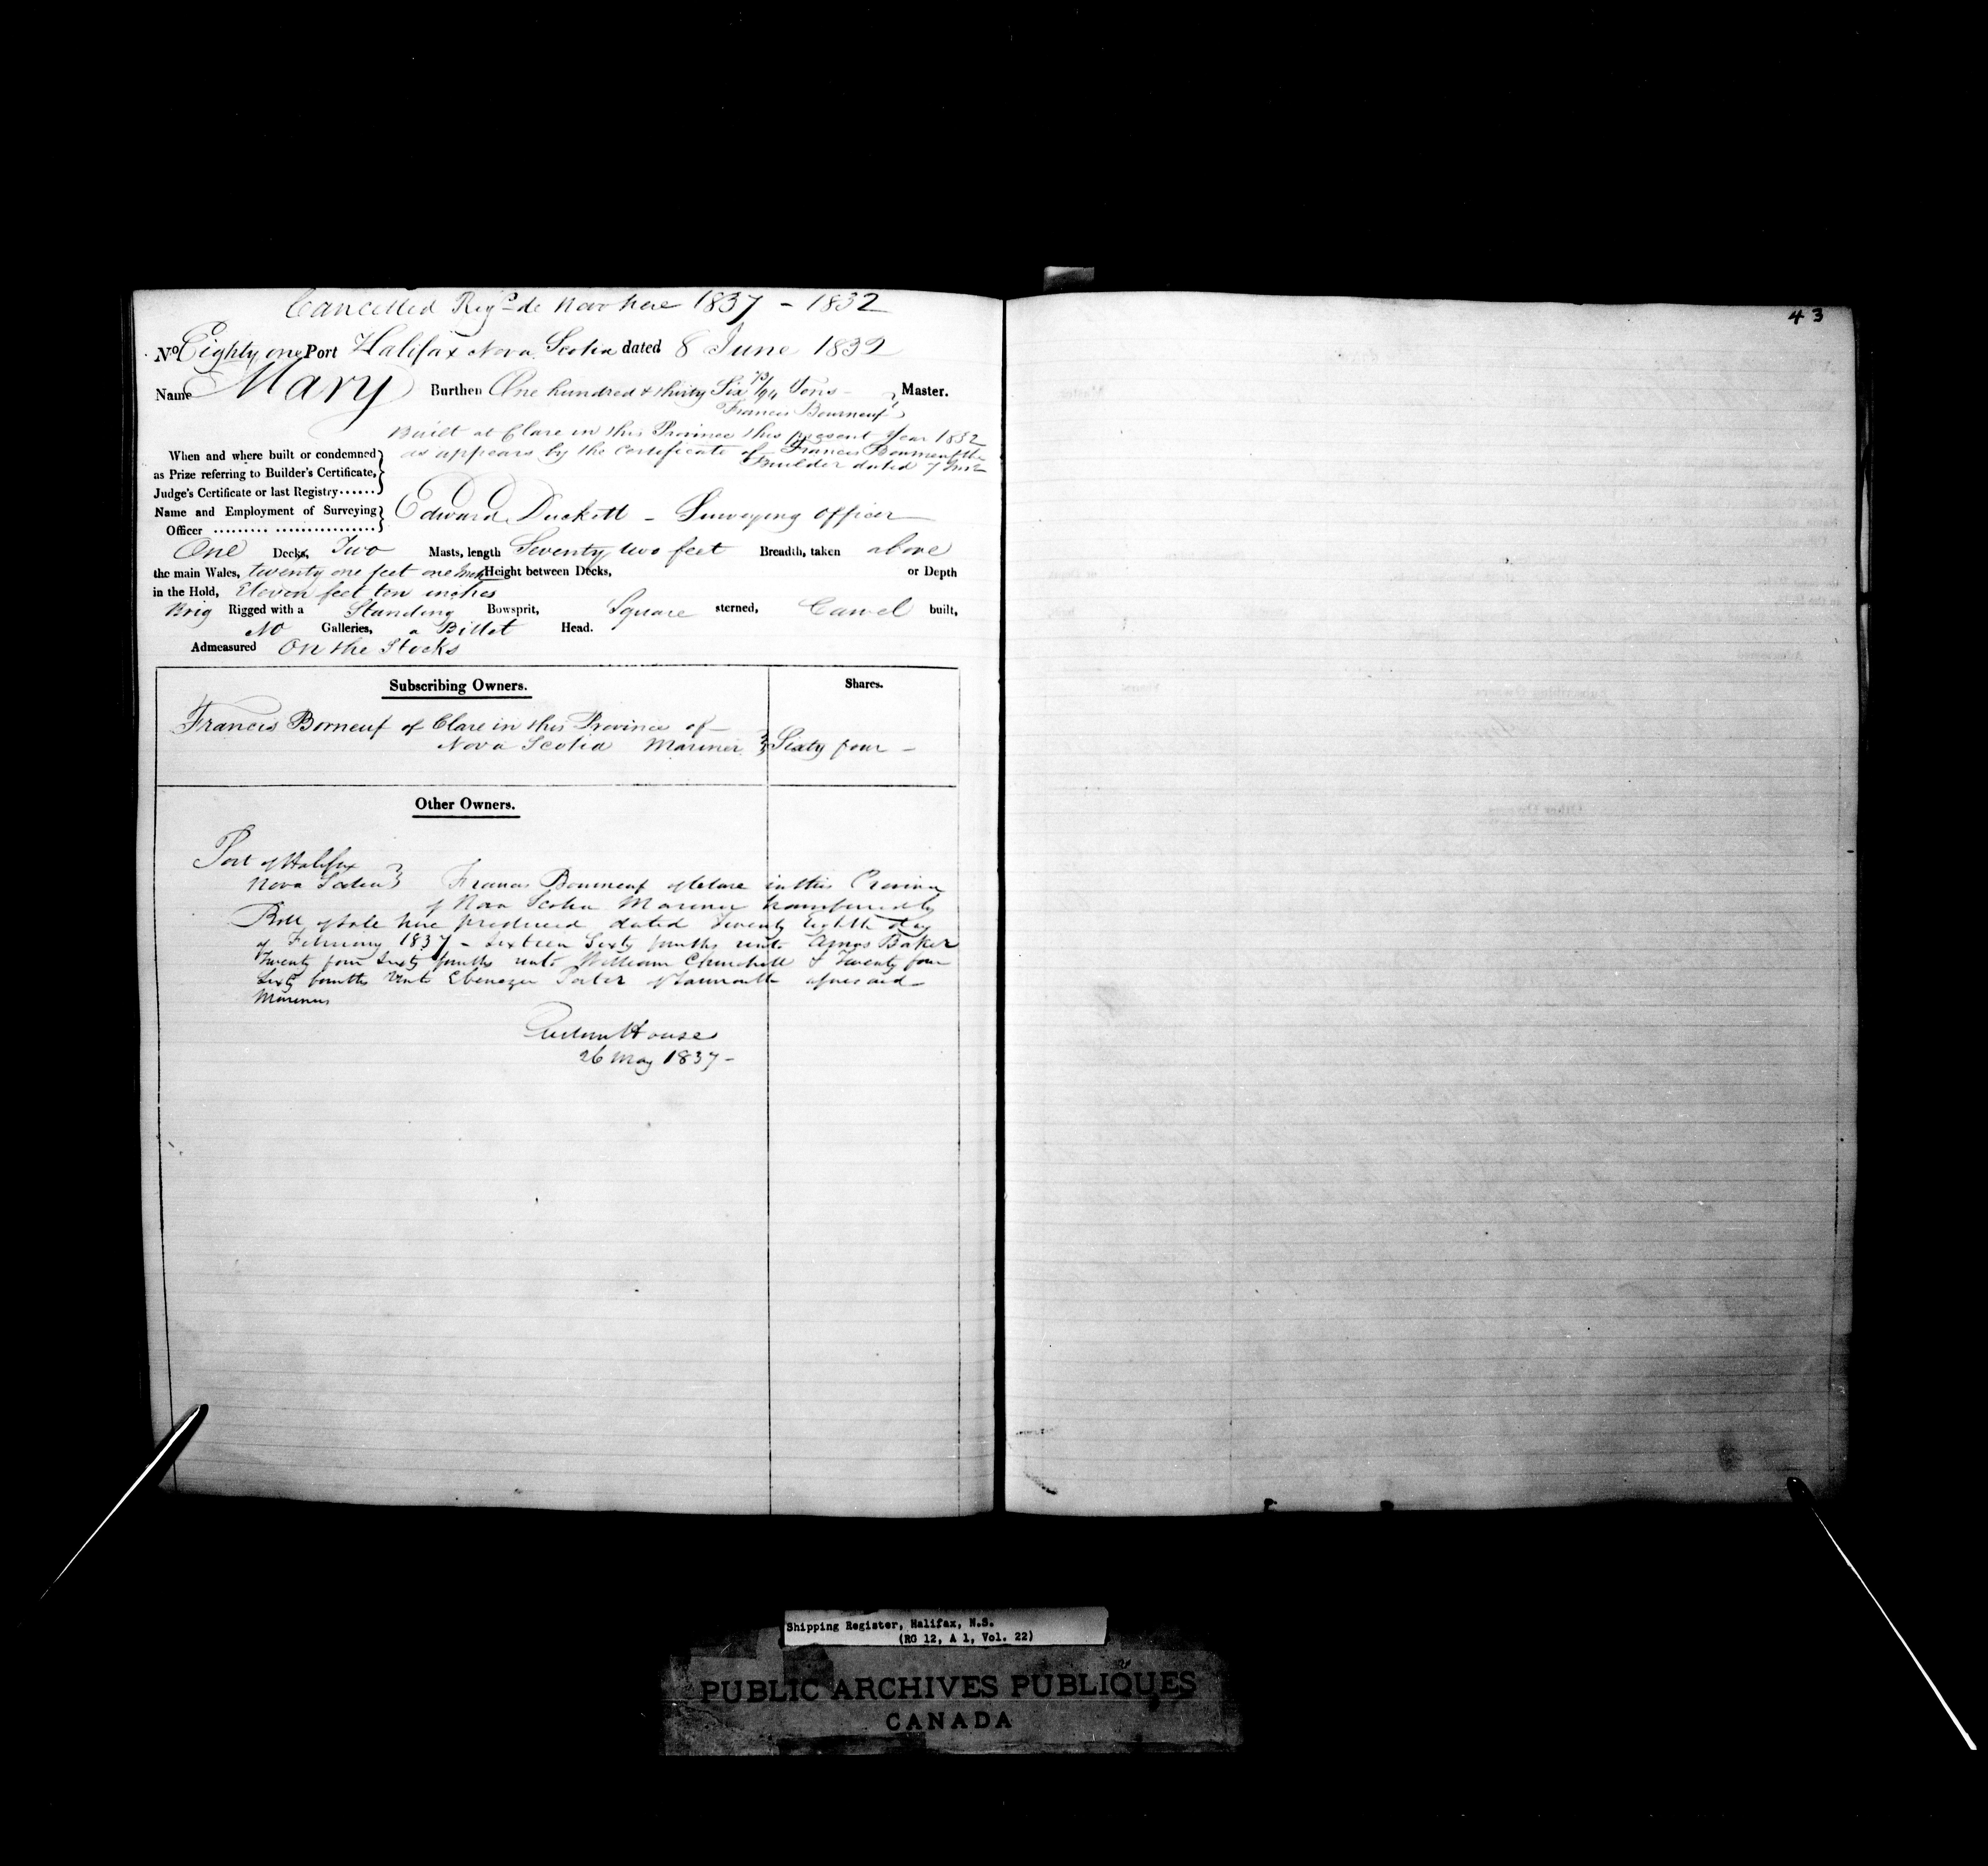 Cancelled Regd de Novo here 1837 - 1832
No Eighty one Port Halifax Nova Scotia dated 8 June 1832
Name Mary Burthen One hundred & thirty Six 73/94 Tons - Master.
Francis Bourneuf
Built at Clare in this Province this present Year 1832
When and where built or condemned as appears by the certificate of Francis Bourneuf the
as Prize referring to Builder's Certificate, Builder dated 7 Inst
Judge's Certificate or last Registry......
Name and Employment of Surveying Edward Duckett - Surveying Officer
Officer
One Decks, Two Masts, length Seventy two feet Breadth, taken above
the main Wales, twenty one feet one Inch Height between Decks, or Depth
in the Hold, Eleven feet ten inches
Brig Rigged with a Standing Bowsprit, Square sterned, Carvel built,
No Galleries, a Billet Head.
Admeasured On the Stocks
Subscribing Owners. Shares.
Francis Borneuf of Clare in this Province of
Nova Scotia Mariner Sixty four -
Other Owners.
Port of Halifax
Nova Scotia Francis Bourneuf of Clare in this Province
of Nova Scotia Mariner transferred by
Bill of Sale here produced dated Twenty Eighth day
of February 1837 - Sixteen Sixty fourths unto Amos Baker
Twenty four Sixty fourths unto William Churchill & Twenty four
Sixty fourths unto Ebenezer Porter of Yarmouth aforesaid
Mariners
Custom House
26 May 1837 -
43
Shipping Register, Halifax, N.S.
(RG 12, A 1, Vol. 22)
PUBLIC ARCHIVES PUBLIQUES
CANADA